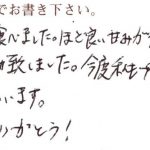 でお書き下さい。
食べました。ほど良い甘みが
致しました。今度私も
います。
りがとう!